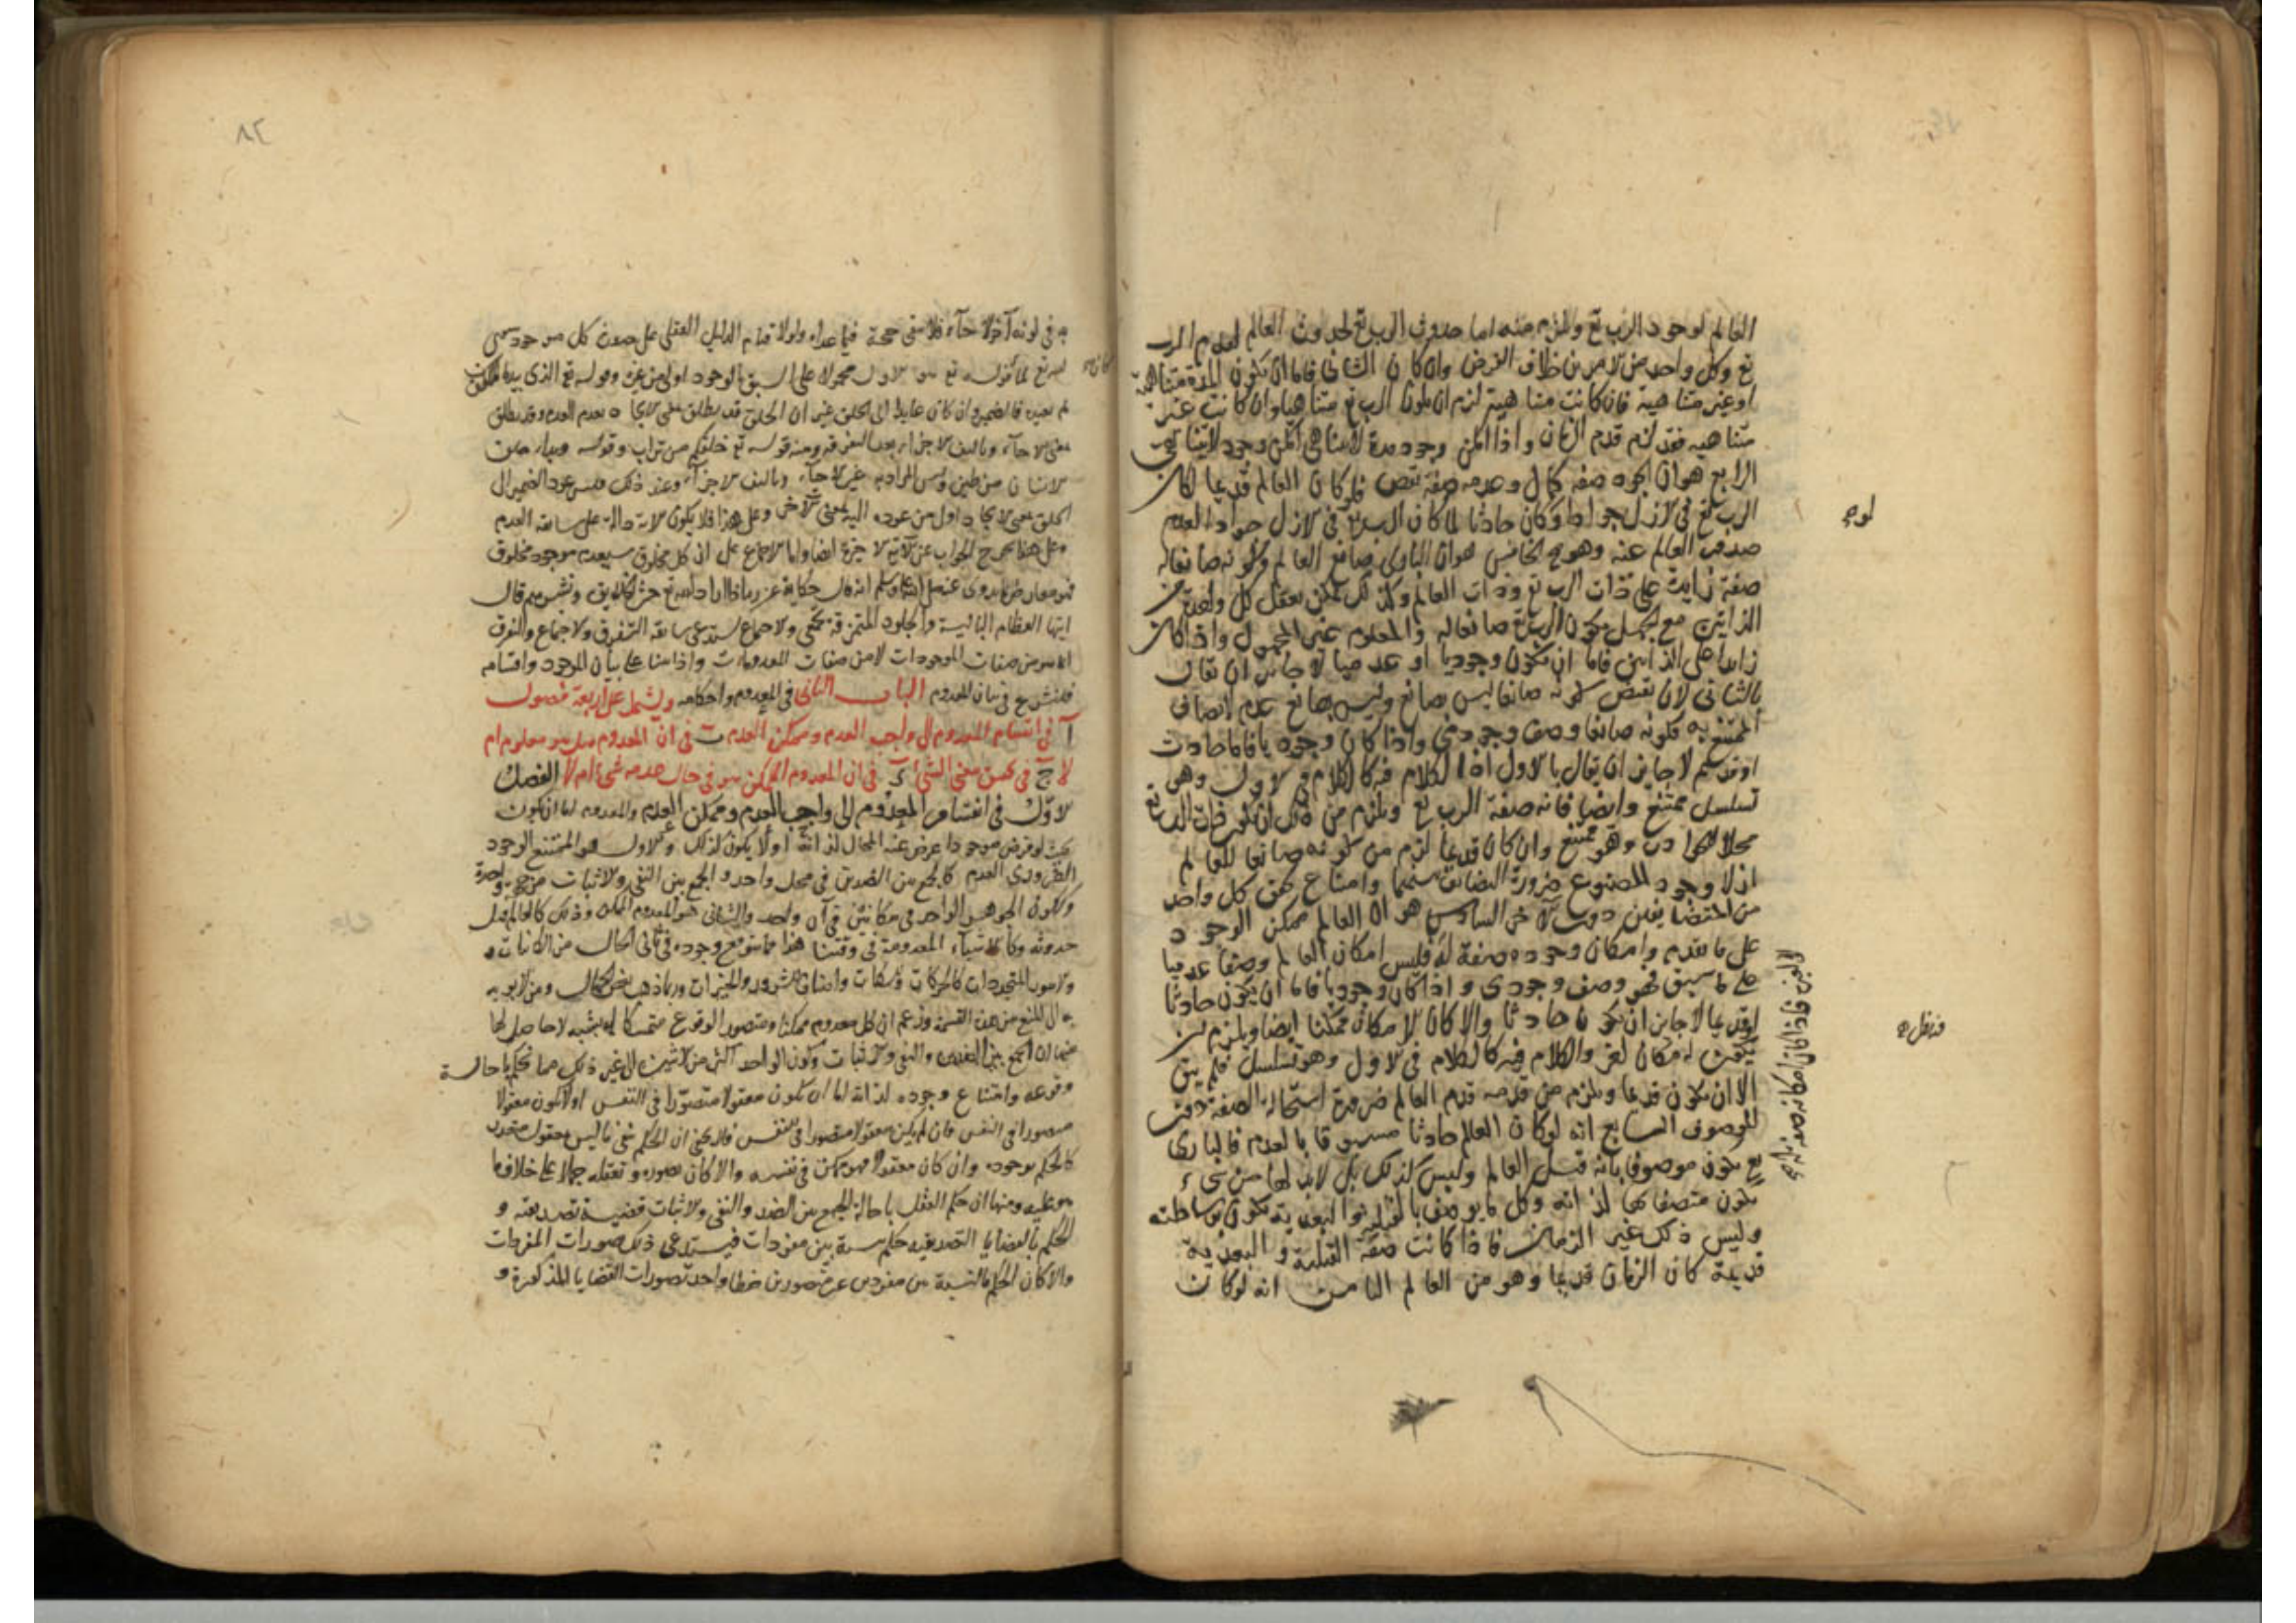 العالم لوجود الرب تع ويلزم منه اما حدوث الرب تع لحدوث العالم او قدم الرب
تع وكل واحد من الامرين خلاف الفرض وان كان الثانى فاما ان تكون المدة متناهية
او غير متناهية فان كانت متناهية لزم ان يكون الرب تع متناهيا وان كانت غير
متناهيه فقد لزم قدم الزمان واذا امكن وجود مدة لا تتناهى امكن وجود لا يتناهى
الرابع هو ان الجود صفة كمال وعدمه صفة نقص فلو كان العالم قديما لكان
الرب تع فى الازل جوادا ولو كان حادثا لما كان الرب تع فى الازل جوادا لعدم
صدور العالم عنه وهو مح الخامس هو ان البارى صانع العالم وكونه صانعا له
صفة زايدة على ذات الرب تع وذات العالم وكذلك يمكن تعقل كل واحد من
الذاتين مع الجهل بكون الرب تع صانعا له والمعلوم غير المجهول واذا كان
زايدا على الذاتين فاما ان يكون وجوديا او عدميا لا جايز ان يقال
بالثانى لان نقيض كونه صانعا ليس بصانع وليس بصانع عدم لاتصاف
الممتنع به فكونه صانعا وصف وجودى واذا كان وجوديا فاما حادث
او قديم لا جايز ان يقال بالاول اذ الكلام فيه كالكلام فى الاول وهو
تسلسل ممتنع وايضا فانه صفة الرب تع ويلزم من ذلك ان يكون ذات الرب تع
محلا للحوادث وهو ممتنع وان كان قديما لزم من كونه صانعا للعالم
ازلا وجود المصنوع ضرورة التضايف بينهما وامتناع تحقق كل واحد
من المتضايفين دون الاخر السادس هو ان العالم ممكن الوجود
على ما تقدم وامكان وجوده صفة له فليس امكان العالم وصفا عدميا
على ما سبق فهو وصف وجودى واذا كان وجوديا فاما ان يكون حادثا
او قديما لا جايز ان يكون حادثا والا كان الامكان ممكنا ايضا ويلزم ان
يكون امكان اخر والكلام فيه كالكلام فى الاول وهو تسلسل فلم يبق
الا ان يكون قديما ويلزم من قدمه قدم العالم ضرورة استحالة الصفة دون
الموصوف السابع انه لو كان العالم حادثا مسبوقا بالعدم فالبارى
تع يكون موصوفا بانه قبل العالم وليس كذلك بل لا بد لها من شىء
يكون متصفا بها لذاته وكل ما يوصف بالقبلية والبعدية يكون بوساطته
وليس ذلك غير الزمان فاذا كانت صفة القبلية والبعدية
قديمة كان الزمان قديما وهو من العالم الثامن انه لو كان
فى كونه
ولولا قيام الدليل العقلى على حدوث كل موجود سوى
محمولا على السبق بالوجود اولى من غيره وقوله تع الذى يبدا الخلق
ثم يعيده فالضمير وان كان عايدا الى الخلق غير ان الخلق قد يطلق بمعنى الايجاد بعدم العدم وقد يطلق
بمعنى الاحياء وتاليف الاجزاء بعد التفرقه ومنه قوله تع خلقكم من تراب وقوله وبداء خلق
الانسان من طين وليس المراد به غير الاحياء وتاليف الاجزاء وعند ذلك فليس عود الضمير الى
الخلق بمعنى الايجاد اولى من عوده اليه بالمعنى الاخر وعلى هذا فلا يكون الاية دالة على سابقة العدم
وعلى هذا يخرج الجواب عن الاية الاخيرة ايضا واما الاجماع على ان كل مخلوق سيعدم موجود مخلوق
فهو معارض بما روى عنه صلى الله عليه وسلم انه قال حكاية عن ربه اذا اراد الله تع حشر الخلايق ونشرهم قال
ايتها العظام البالية والجلود المتمزقة تجمعى والاجماع يستدعى سابقة التفرق والاجماع والتفرق
انما هو من صفات الموجودات لا من صفات المعدومات واذ اتينا على بيان الموجود واقسامه
فلنشرع فى بيان المعدوم الباب الثانى فى المعدوم واحكامه ويشتمل على اربعة فصول
آ فى انقسام المعدوم الى واجب العدم وممكن العدم ب فى ان المعدوم هل هو معلوم ام
لا ج فى تحقيق معنى الشئ د فى ان المعدوم الممكن هو فى حال عدمه شئ ام لا الفصل
الاول فى انقسام المعدوم الى واجب العدم وممكن العدم والمعدوم اما ان يكون
بحيث لو فرض موجودا عرض عنه المحال لذاته او لا يكون كذلك والاول هو الممتنع الوجود
الضرورى العدم كالجمع بين الضدين فى محل واحد والجمع بين النفى والاثبات من جهة واحدة
وككون الجوهر الواحد فى مكانين فى آن واحد والثانى هو المعدوم الممكن وذلك كالعالم قبل
حدوثه وكالاشياء المعدومة فى وقتنا هذا مما يتوقع وجوده فى ثانى الحال من الكائنات و
الامور المتجددات كالحركات والسكنات واصناف الشرور والخيرات وربما ذهب بعض الجهال ومن لا يوبه
به الى المنع من هذه القسمة وزعم ان كل معدوم ممكن ومتصور الوقوع متمسكا بشبه لا حاصل لها
منها ان الجمع بين الضدين والنفى والاثبات وكون الواحد اكثر من الاثنين الى غير ذلك مما نحكم باحالة
وقوعه وامتناع وجوده لذاته اما ان يكون معقولا متصورا فى النفس او لا يكون معقولا
متصورا فى النفس فان لم يكن معقولا متصورا فى النفس فلا يخفى ان الحكم على ما ليس بمعقول متعذر
كالحكم بوجوده وان كان معقولا فهو ممكن فى نفسه والا كان تصوره وتعقله جهلا على خلاف ما
هو عليه ومنها ان حكم العقل باحالة الجمع بين الضد والنفى والاثبات قضية تصديقية و
الحكم بالقضايا التصديقيه حكم بنسبة بين مفردات فيستدعى ذلك تصورات المفردات
والا كان الحكم بالنسبة بين مفردين غير متصورين خطا واحد تصورات القضايا المذكورة و